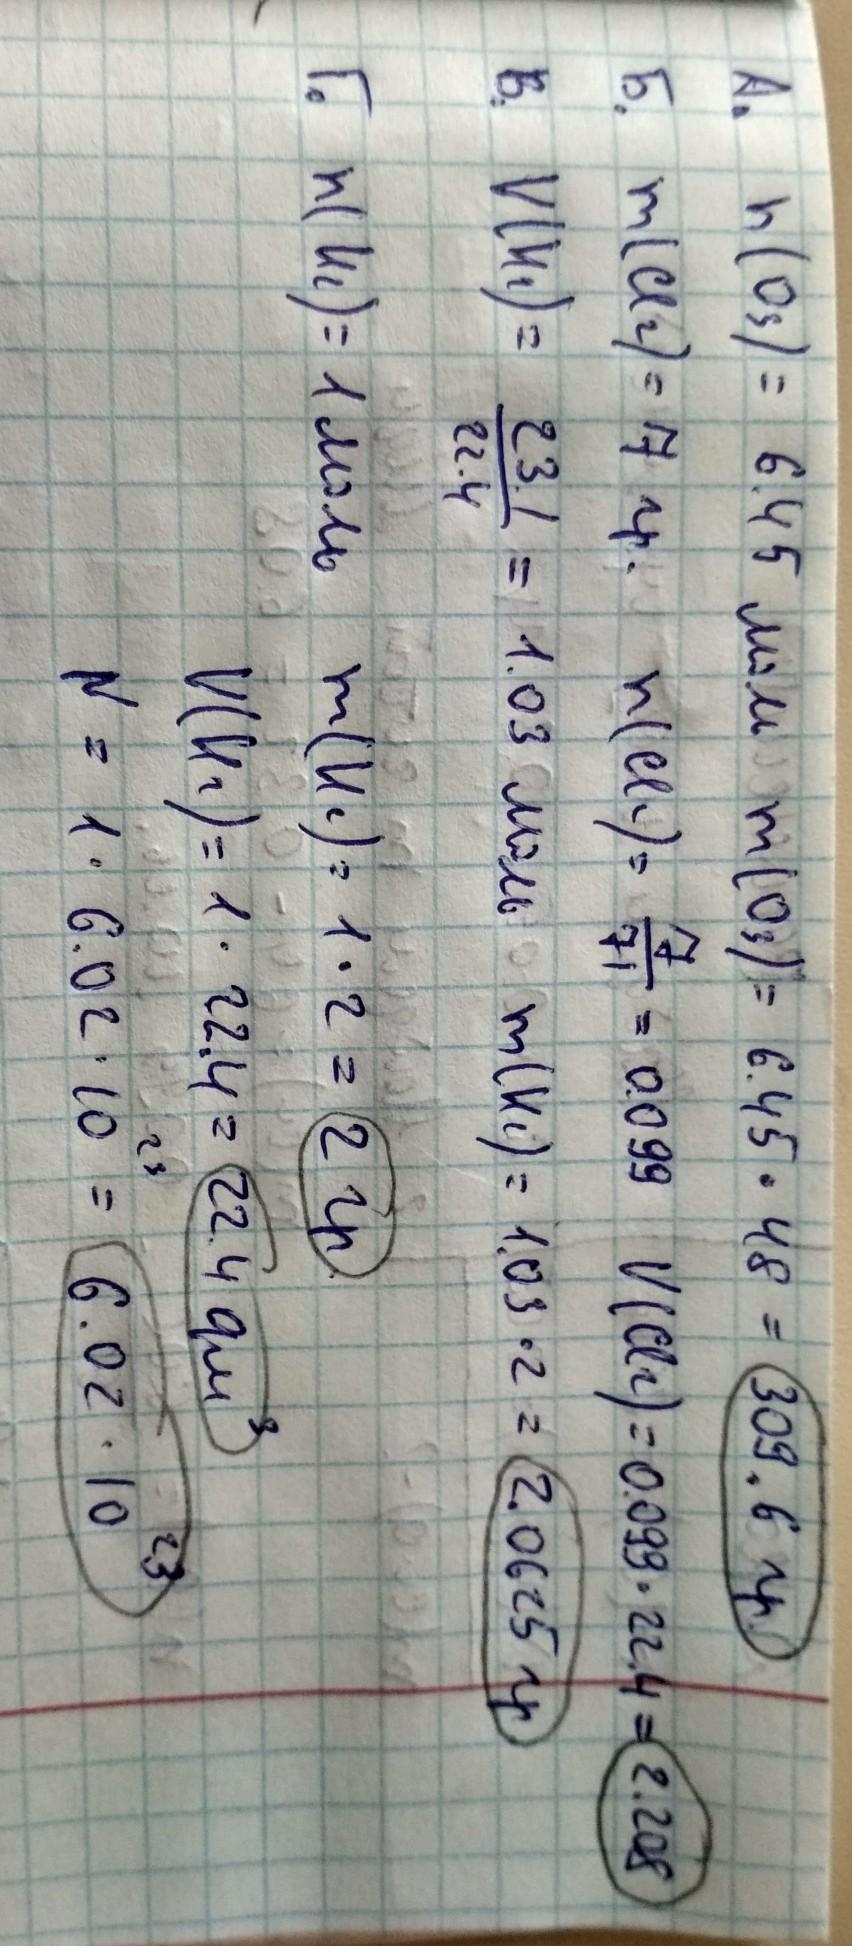 А. n(O₃) = 6.45 моль m(O₃) = 6.45 · 48 = 309.6 гр.
Б. m(Cl₂) = 7 гр. n(Cl₂) = 7/71 = 0.099 V(Cl₂) = 0.099 · 22.4 = 2.208
В. V(H₂) = 23.1/22.4 = 1.03 моль m(H₂) = 1.03 · 2 = 2.0625 гр
Г. n(H₂) = 1 моль m(H₂) = 1 · 2 = 2 гр.
V(H₂) = 1 · 22.4 = 22.4 дм³
N = 1 · 6.02 · 10²³ = 6.02 · 10²³